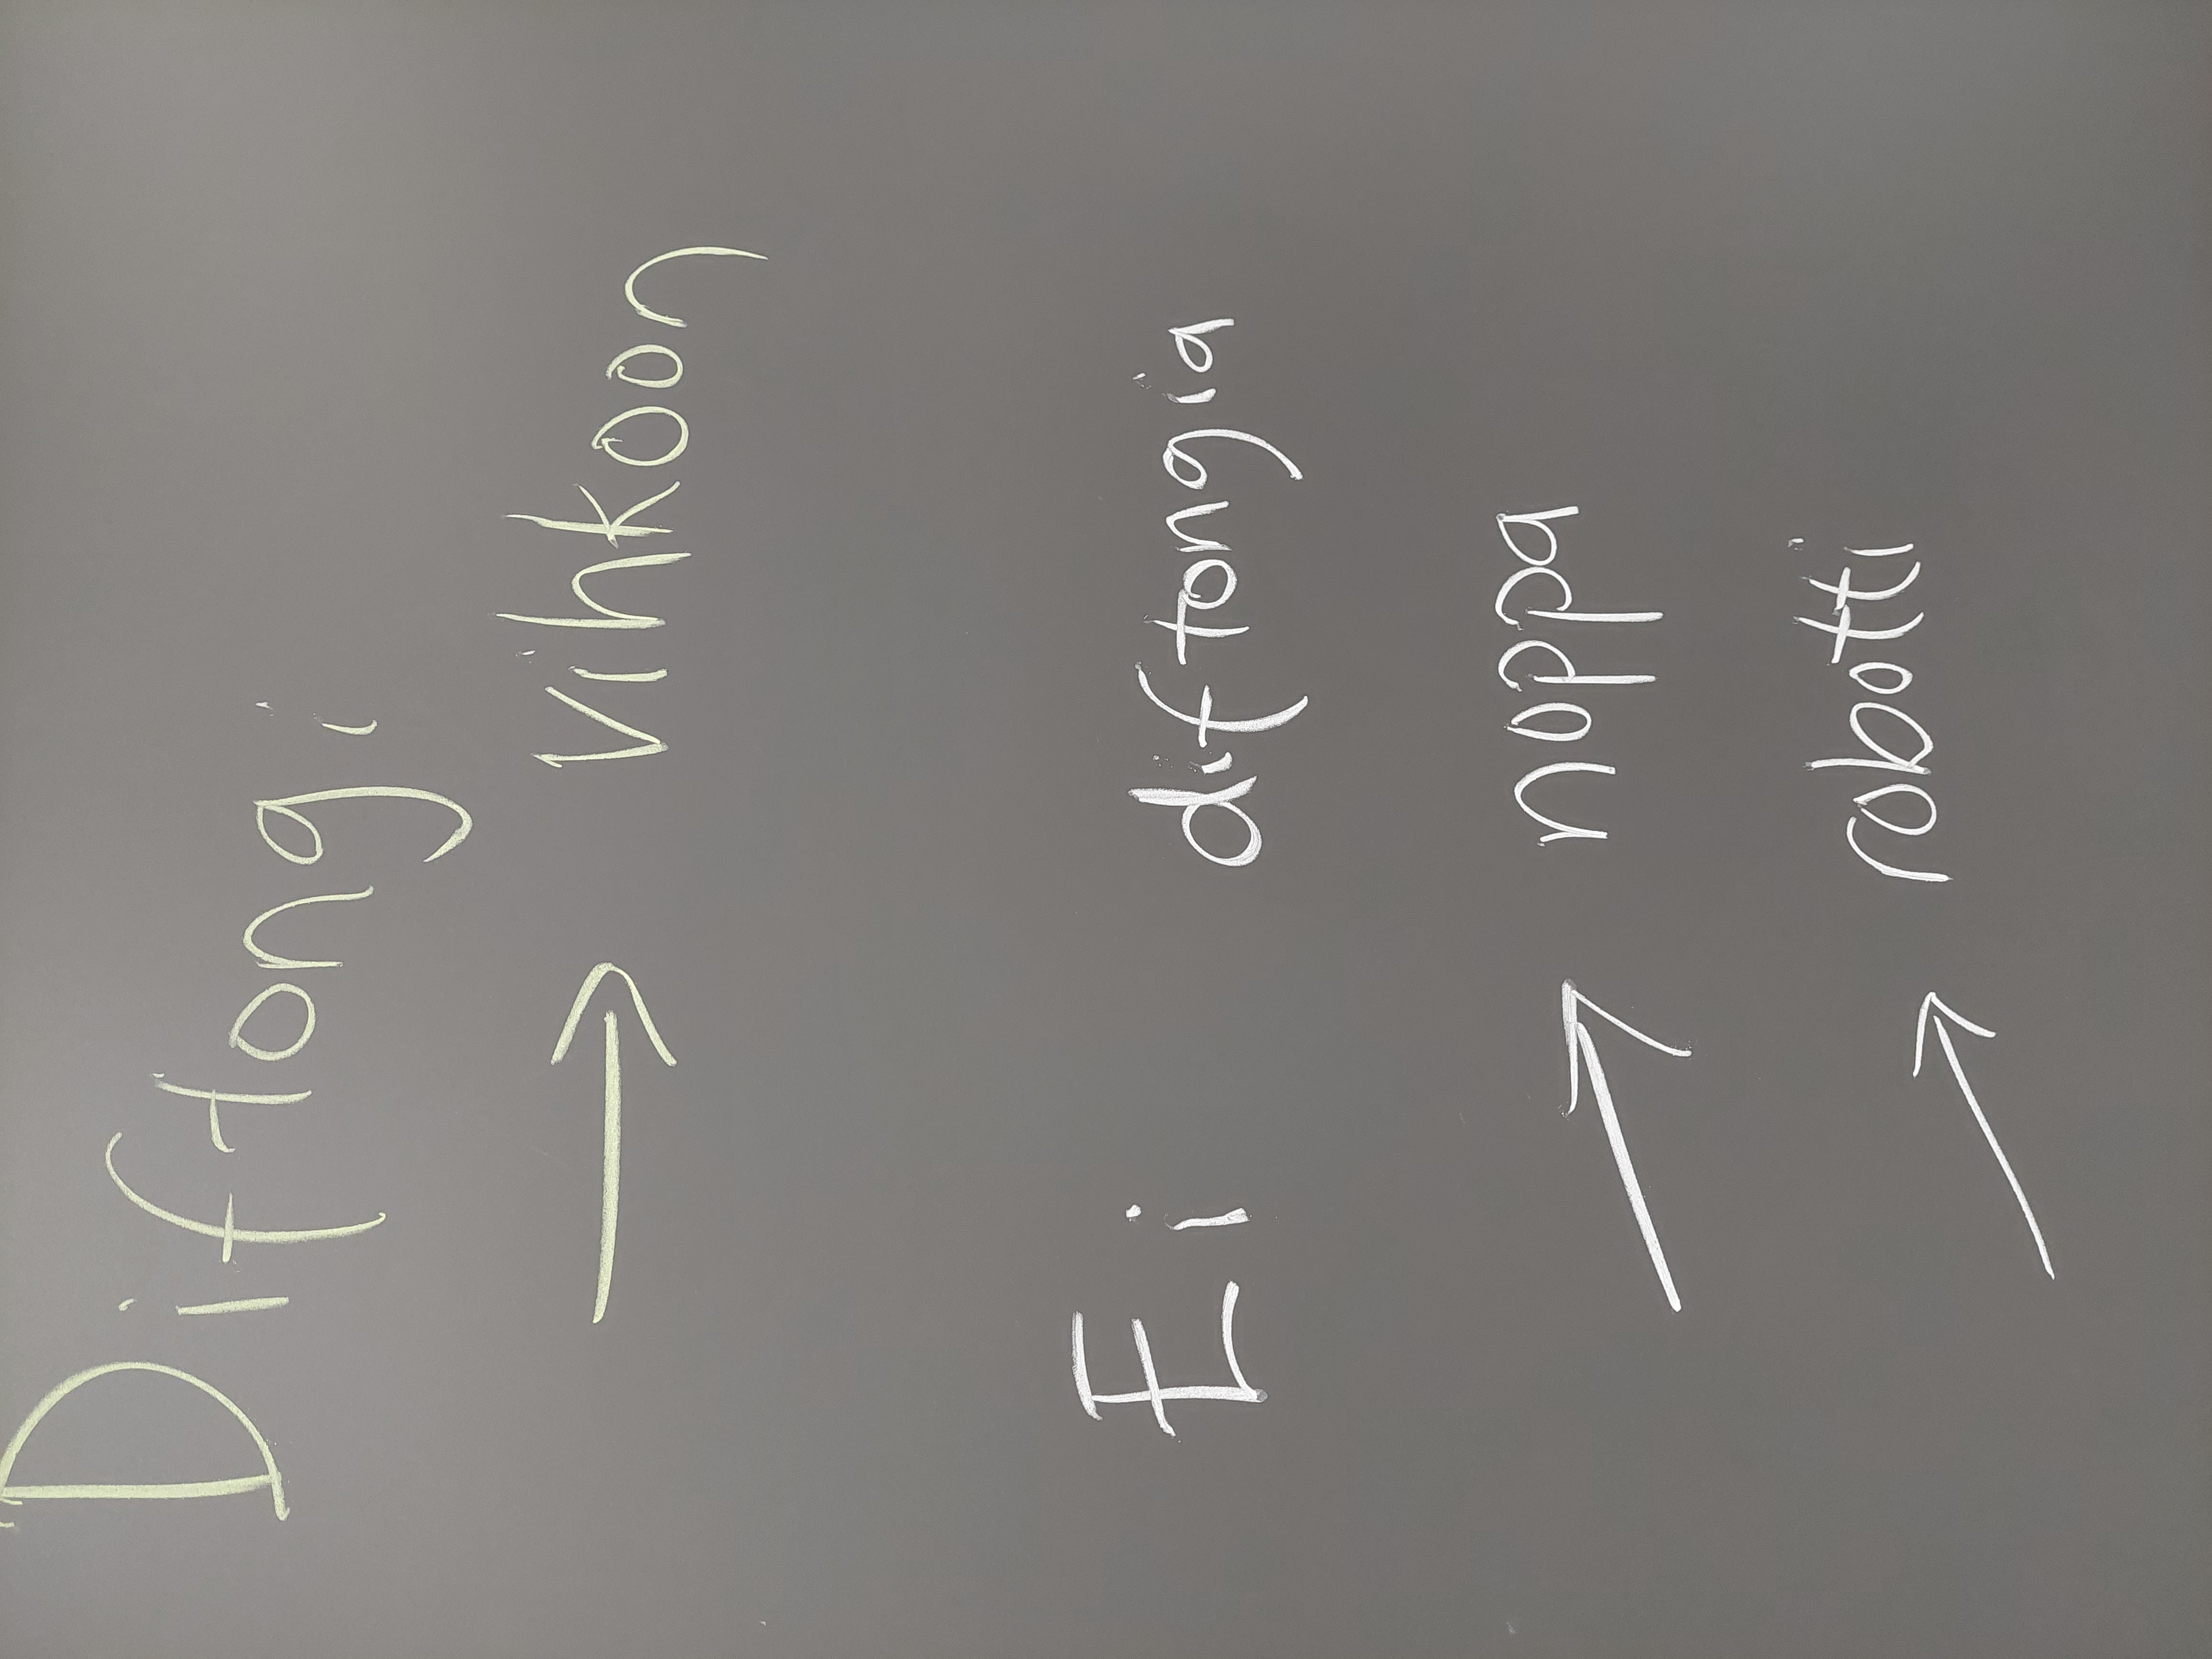 Diftongi
→ vihkoon
Ei diftongia
→ noppa
→ robotti